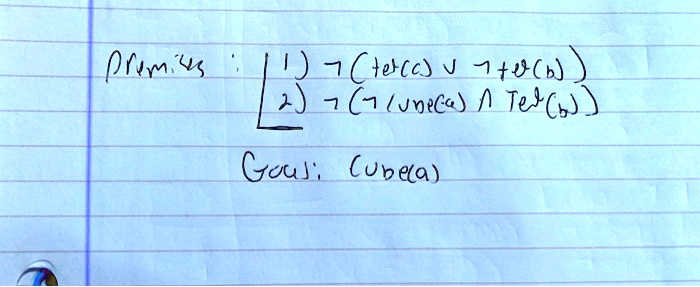 Premises : 1) ¬(tet(c) ∨ ¬tet(b))
2) ¬(¬Cube(a) ∧ Tet(b))
Goal: Cube(a)